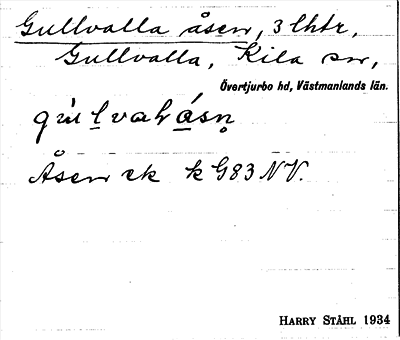 Gullvalla åsen, 3 lhtr,
Gullvalla, Kila sn,
Övertjurbo hd, Västmanlands län.
Åsen ek k G83 NV.
HARRY STÅHL 1934